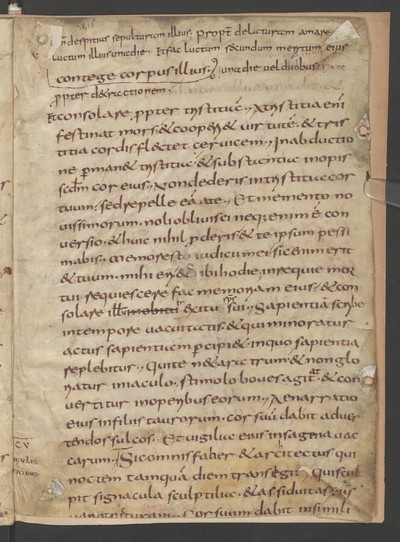 non despicias sepulturam illius. Propt delaturam amare
luctum illius uno die. Et fac luctum secundum meritum eius
contege corpus illius. uno die vel duobus
propter detractionem
Et consolare propter tristitiā. A tristitia eni
festinat mors & cooperit uirtutē. & tris
titia cordis flectet ceruicem. In abductio
ne permanet tristitia. & substantia inopis
scdm cor eius. Non dederis in tristitia cor
tuum. sed repelle eā a te. Et memento no
uissimorum. noli obliuisci neq; enim ē con
uersio. & huic nihil proderis & te ipsum pessi
mabis. Memor esto iudicii mei. sic enim erit
& tuum. mihi eri & tibi hodie. in requie mor
tui requiescere fac memoriam eius. & con
solare illū in exitu sps sui. Sapientiā scribe
in tempore uacuitatis. & qui minoratur
actu sapientiam percipi&. in quo sapientia
replebitur. Qui ten& aratrum. & non glo
riatur in iaculo. stimolo boues agitat. & con
uertitur in operibus eorum. & enarratio
eius in filiis taurorum. cor suū dabit ad uer
tendos sulcos. Et uigilia eius in sagina uac
carum. Sic omnis faber & arcitectus qui
noctem tamquā diem transegit. Qui scul
pit signacula sculptilia. & assiduitas eius
uariat picturam. Cor suum dabit in simili
CV